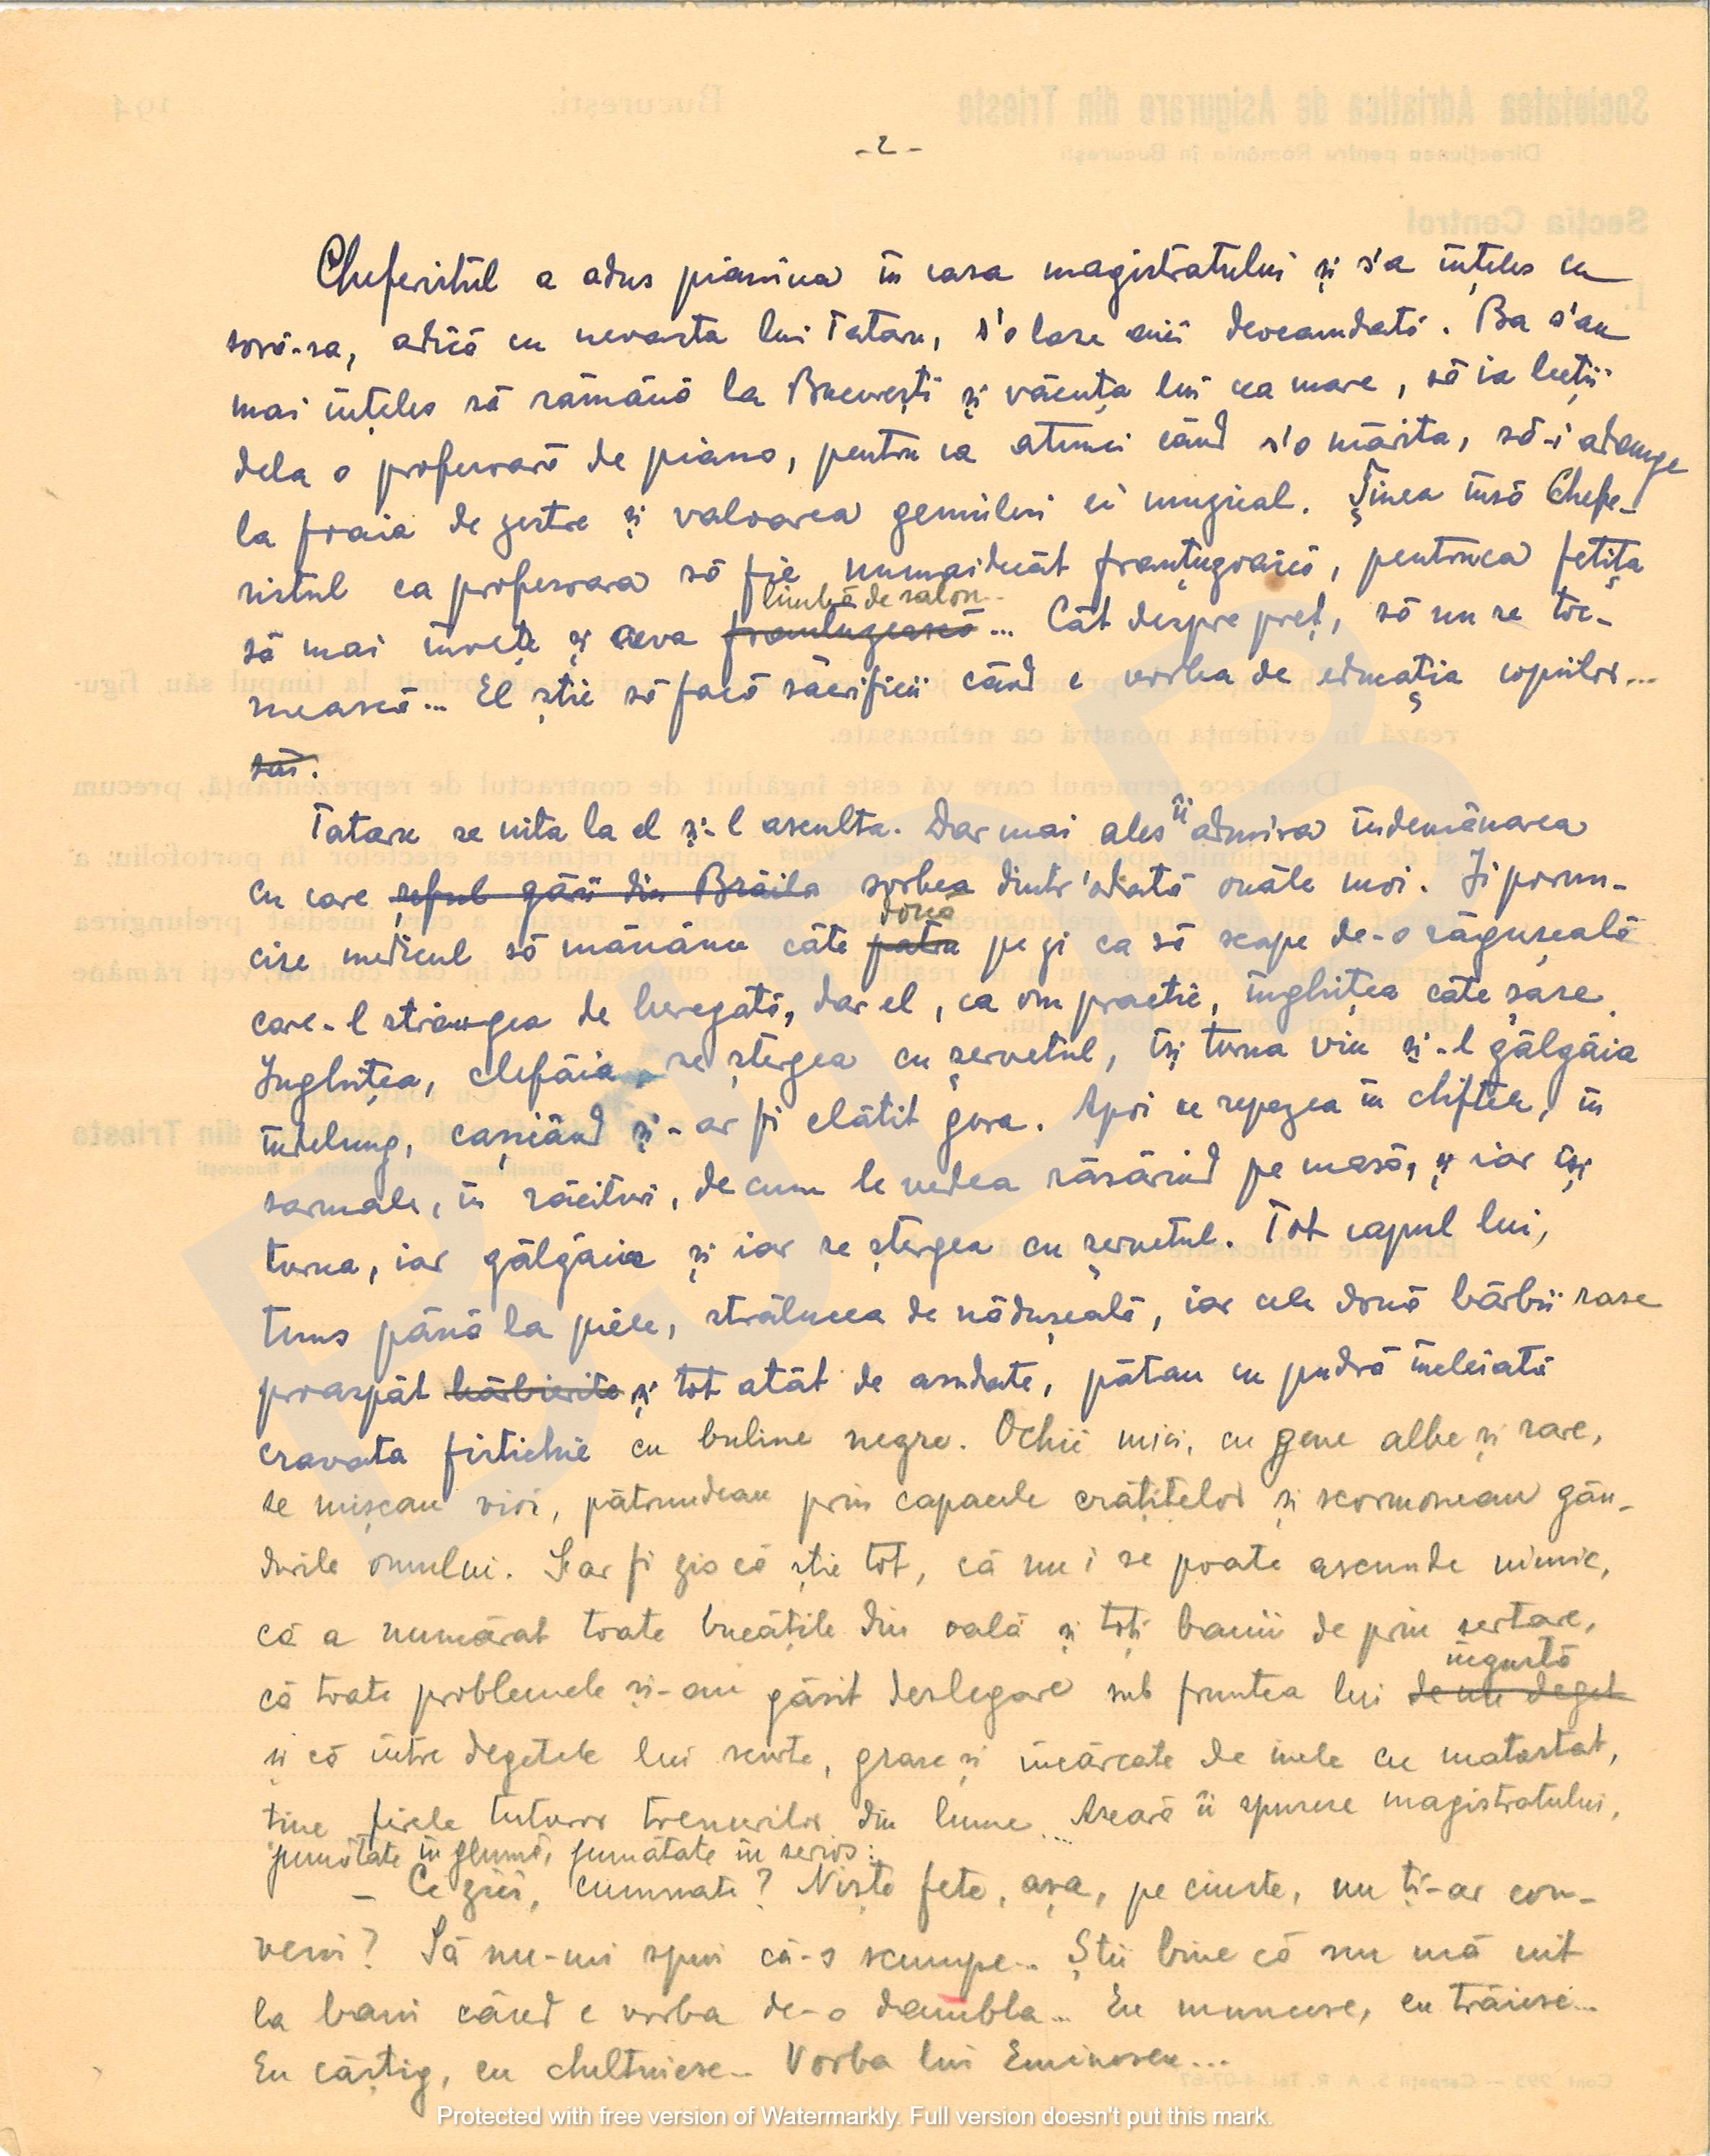 - 2 -
Cheferistul a adus pianina în casa magistratului și s'a înțeles cu
soră-sa, adică cu nevasta lui Tatase, s'o lase aici deocamdată. Ba s'au
mai înțeles să rămână la București și văcuța lui cea mare, să ia lecții
dela o profesoară de piano, pentru ca atunci când s'o mărita, să-i adauge
la foaia de zestre și valoarea geniului ei muzical. Ținea însă Chefe-
ristul ca profesoara să fie numaidecât franțuzoaică, pentruca fetița
limbă de salon
să mai învețe și ceva franțuzească... Cât despre preț, să nu se toc-
mească... El știe să facă sacrificii când e vorba de educația copiilor...
săi.
Tatase se uita la el și-l asculta. Dar mai ales îi admira îndemânarea
cu care șeful gării din Brăila sorbea dintr'odată ouăle moi. Ji porun-
două
cise medicul să mănânce câte patru pe zi ca să scape de-o răgușeală
care-l strângea de beregată, dar el, ca om practic, înghițea câte șase.
Înghițea, clefăia, se ștergea cu șervetul, își turna vin și-l gâlgâia
îndelung, cașicând și-ar fi clătit gura. Apoi se repezea în chiftele, în
sarmale, în răcituri, de cum le vedea răsărind pe masă, și iar își
turna, iar gâlgâia și iar se ștergea cu șervetul. Tot capul lui,
tuns până la piele, strălucea de nădușeală, iar cele două bărbii rase
proaspăt bărbierite și tot atât de asudate, pătau cu pudră încleiată
cravata fistichie cu buline negre. Ochii mici, cu gene albe și rare,
se mișcau vioi, pătrundeau prin capacele crătițelor și scormoneau gân-
durile omului. S'ar fi zis că știe tot, că nu i se poate ascunde nimic,
că a numărat toate bucățile din oală și toți banii de prin sertare,
îngustă
că toate problemele și-au găsit deslegare sub fruntea lui de un deget
și că între degetele lui scurte, grase și încărcate de inele cu matostat,
ține firele tuturor trenurilor din lume... Aseară îi spusese magistratului,
jumătate în glumă, jumătate în serios:
- Ce zici, cumnate? Niște fete, așa, pe cinste, nu ți-ar con-
veni? Să nu-mi spui că-s scumpe... Știi bine că nu mă uit
la bani când e vorba de-o dambla... Eu muncesc, eu trăiesc...
Eu câștig, eu cheltuiesc... Vorba lui Eminescu...
Protected with free version of Watermarkly. Full version doesn't put this mark.